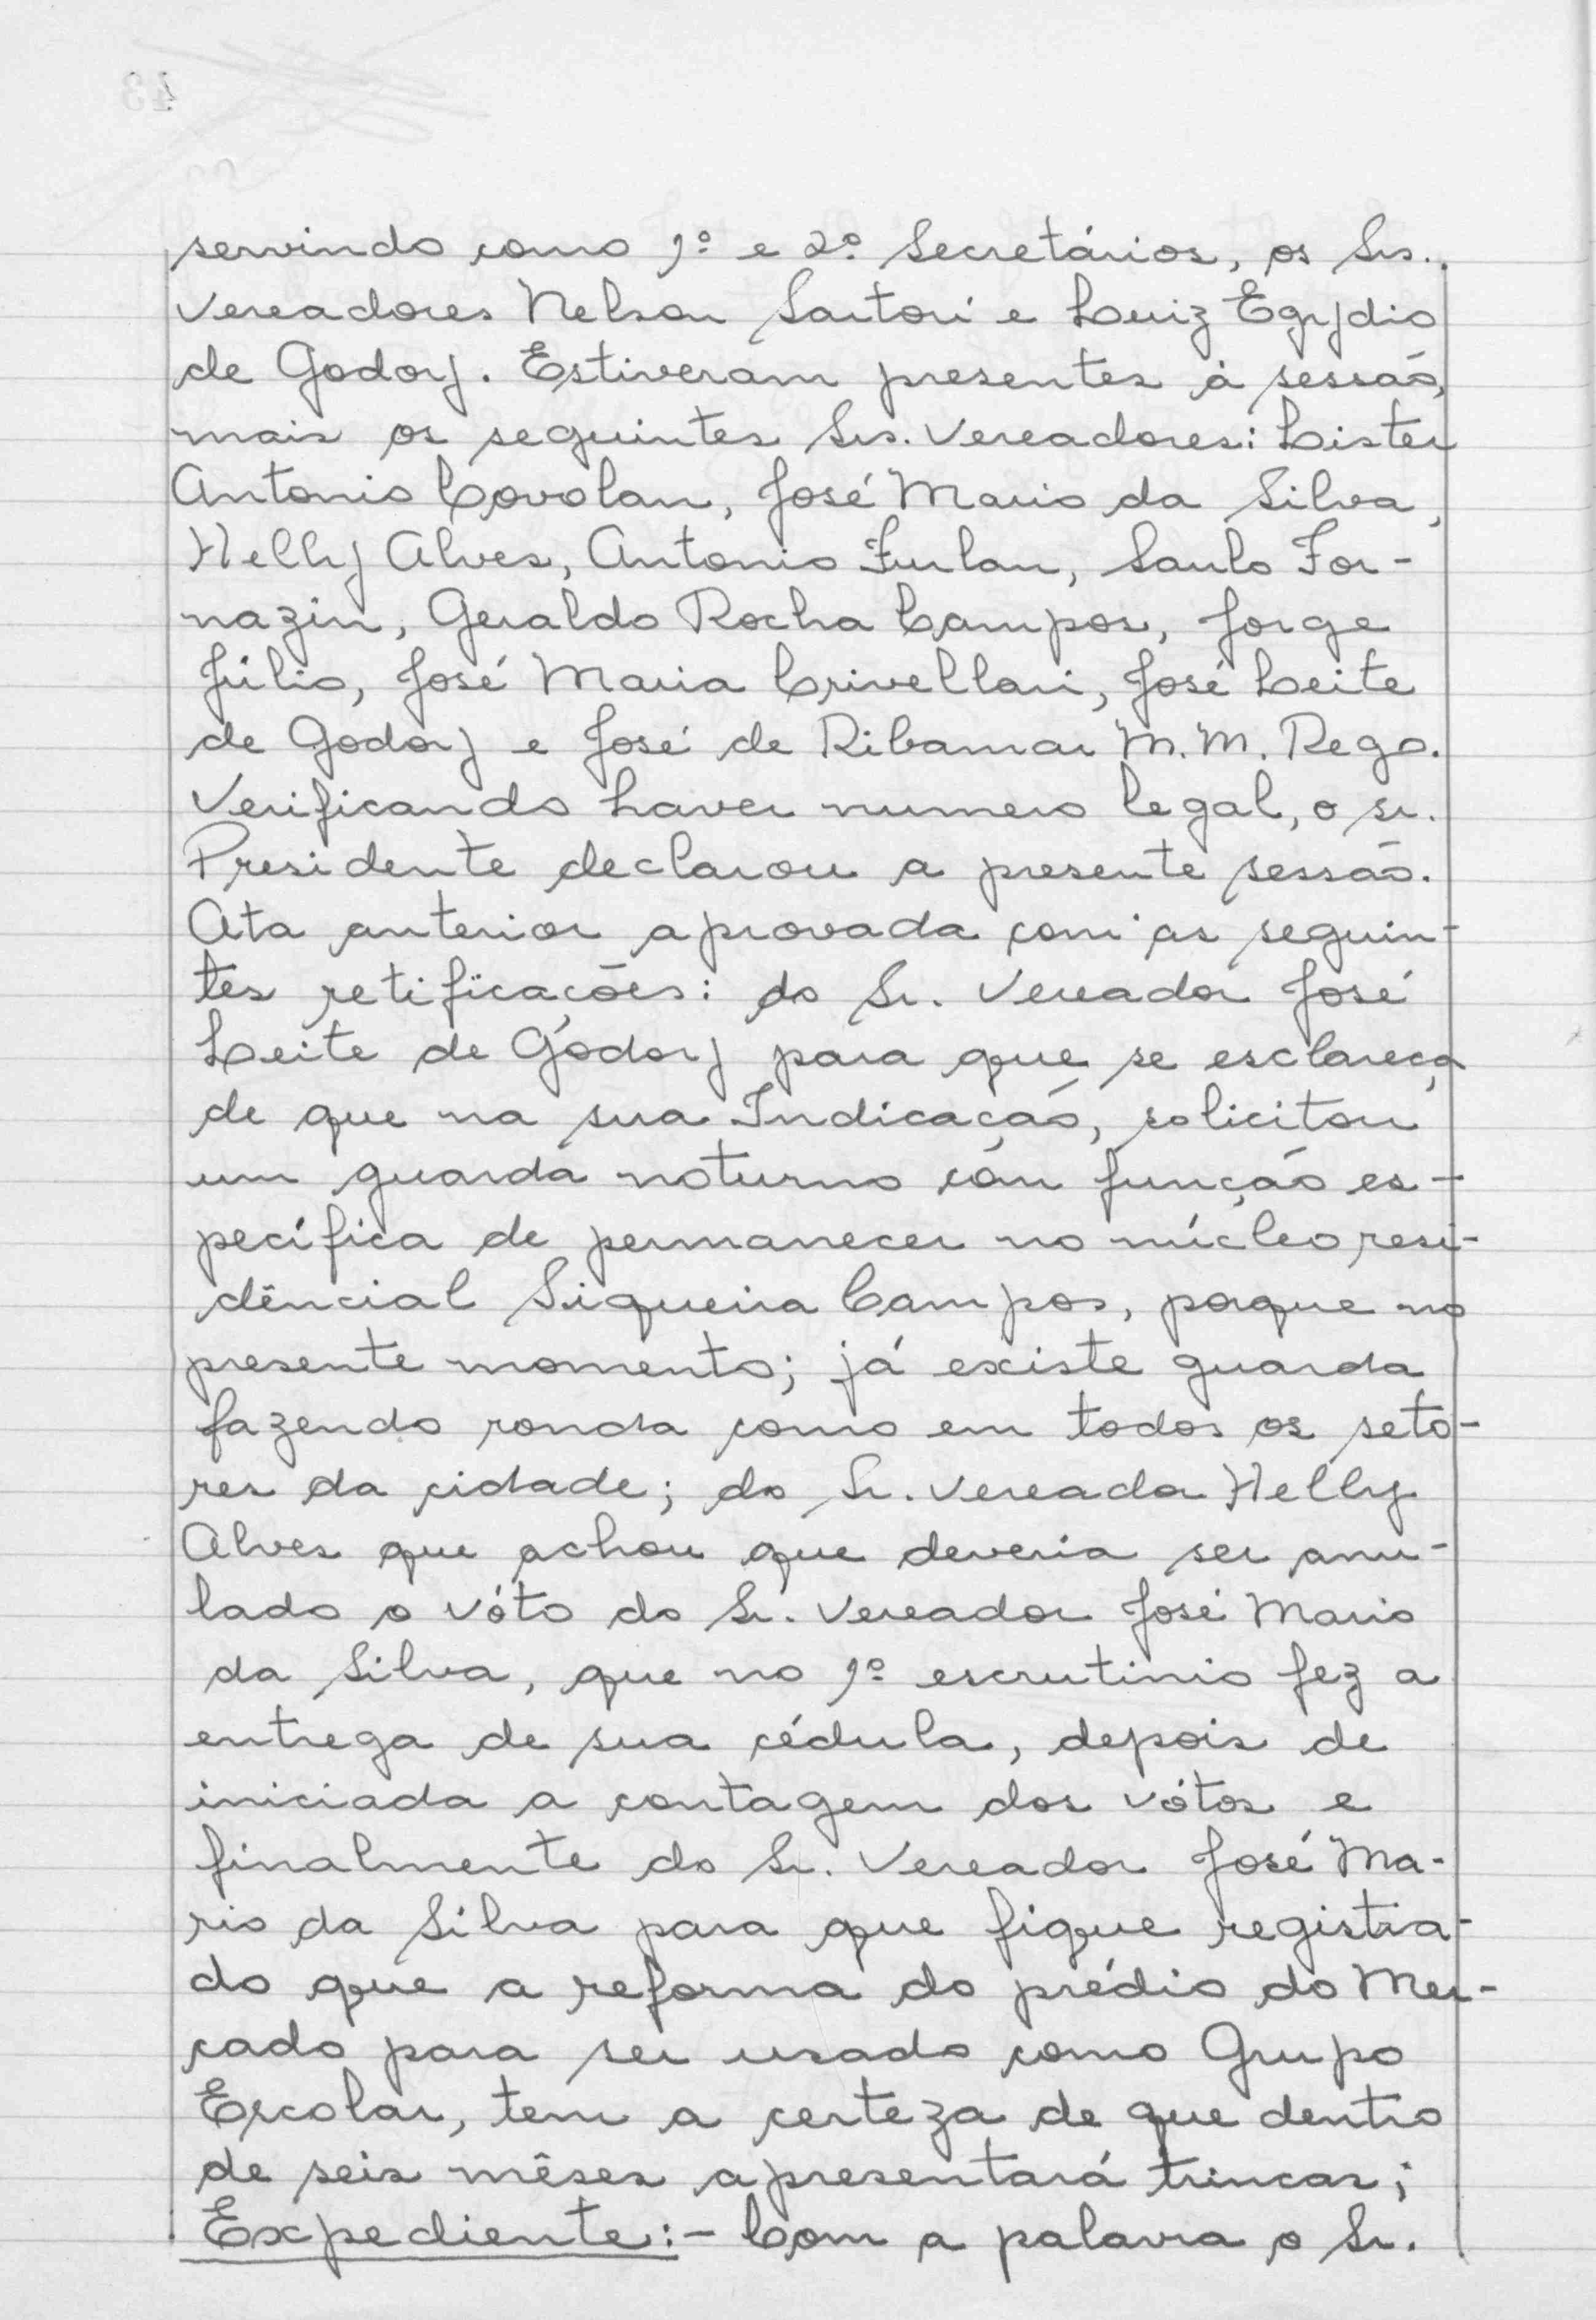 servindo como 1º e 2º Secretários, os Srs.
Vereadores Nelson Sartori e Luiz Egydio
de Godoy. Estiveram presentes à sessão,
mais os seguintes Srs. Vereadores: Lister
Antonio Covolan, José Mario da Silva,
Helly Alves, Antonio Furlan, Saulo For-
nazin, Geraldo Rocha Campos, Jorge
Júlio, José Maria Crivellari, José Leite
de Godoy e José de Ribamar M. M. Rego.
Verificando haver numero legal, o sr.
Presidente declarou a presente sessão.
Ata anterior aprovada com as seguin-
tes retificações: do Sr. Vereador José
Leite de Godoy para que se esclareça
de que na sua Indicação, solicitou
um guarda noturno com função es-
pecífica de permanecer no núcleo resi-
dêncial Siqueira Campos, porque no
presente momento; já existe guarda
fazendo ronda como em todos os seto-
res da cidade; do Sr. Vereador Helly
Alves que achou que deveria ser anu-
lado o vóto do Sr. Vereador José Mario
da Silva, que no 1º escrutinio fez a
entrega de sua cédula, depois de
iniciada a contagem dos vótos e
finalmente do Sr. Vereador José Ma-
rio da Silva para que fique registra-
do que a reforma do prédio do Mer-
cado para ser usado como Grupo
Escolar, tem a certeza de que dentro
de seis mêses apresentará trincas;
Expediente:- Com a palavra o Sr.